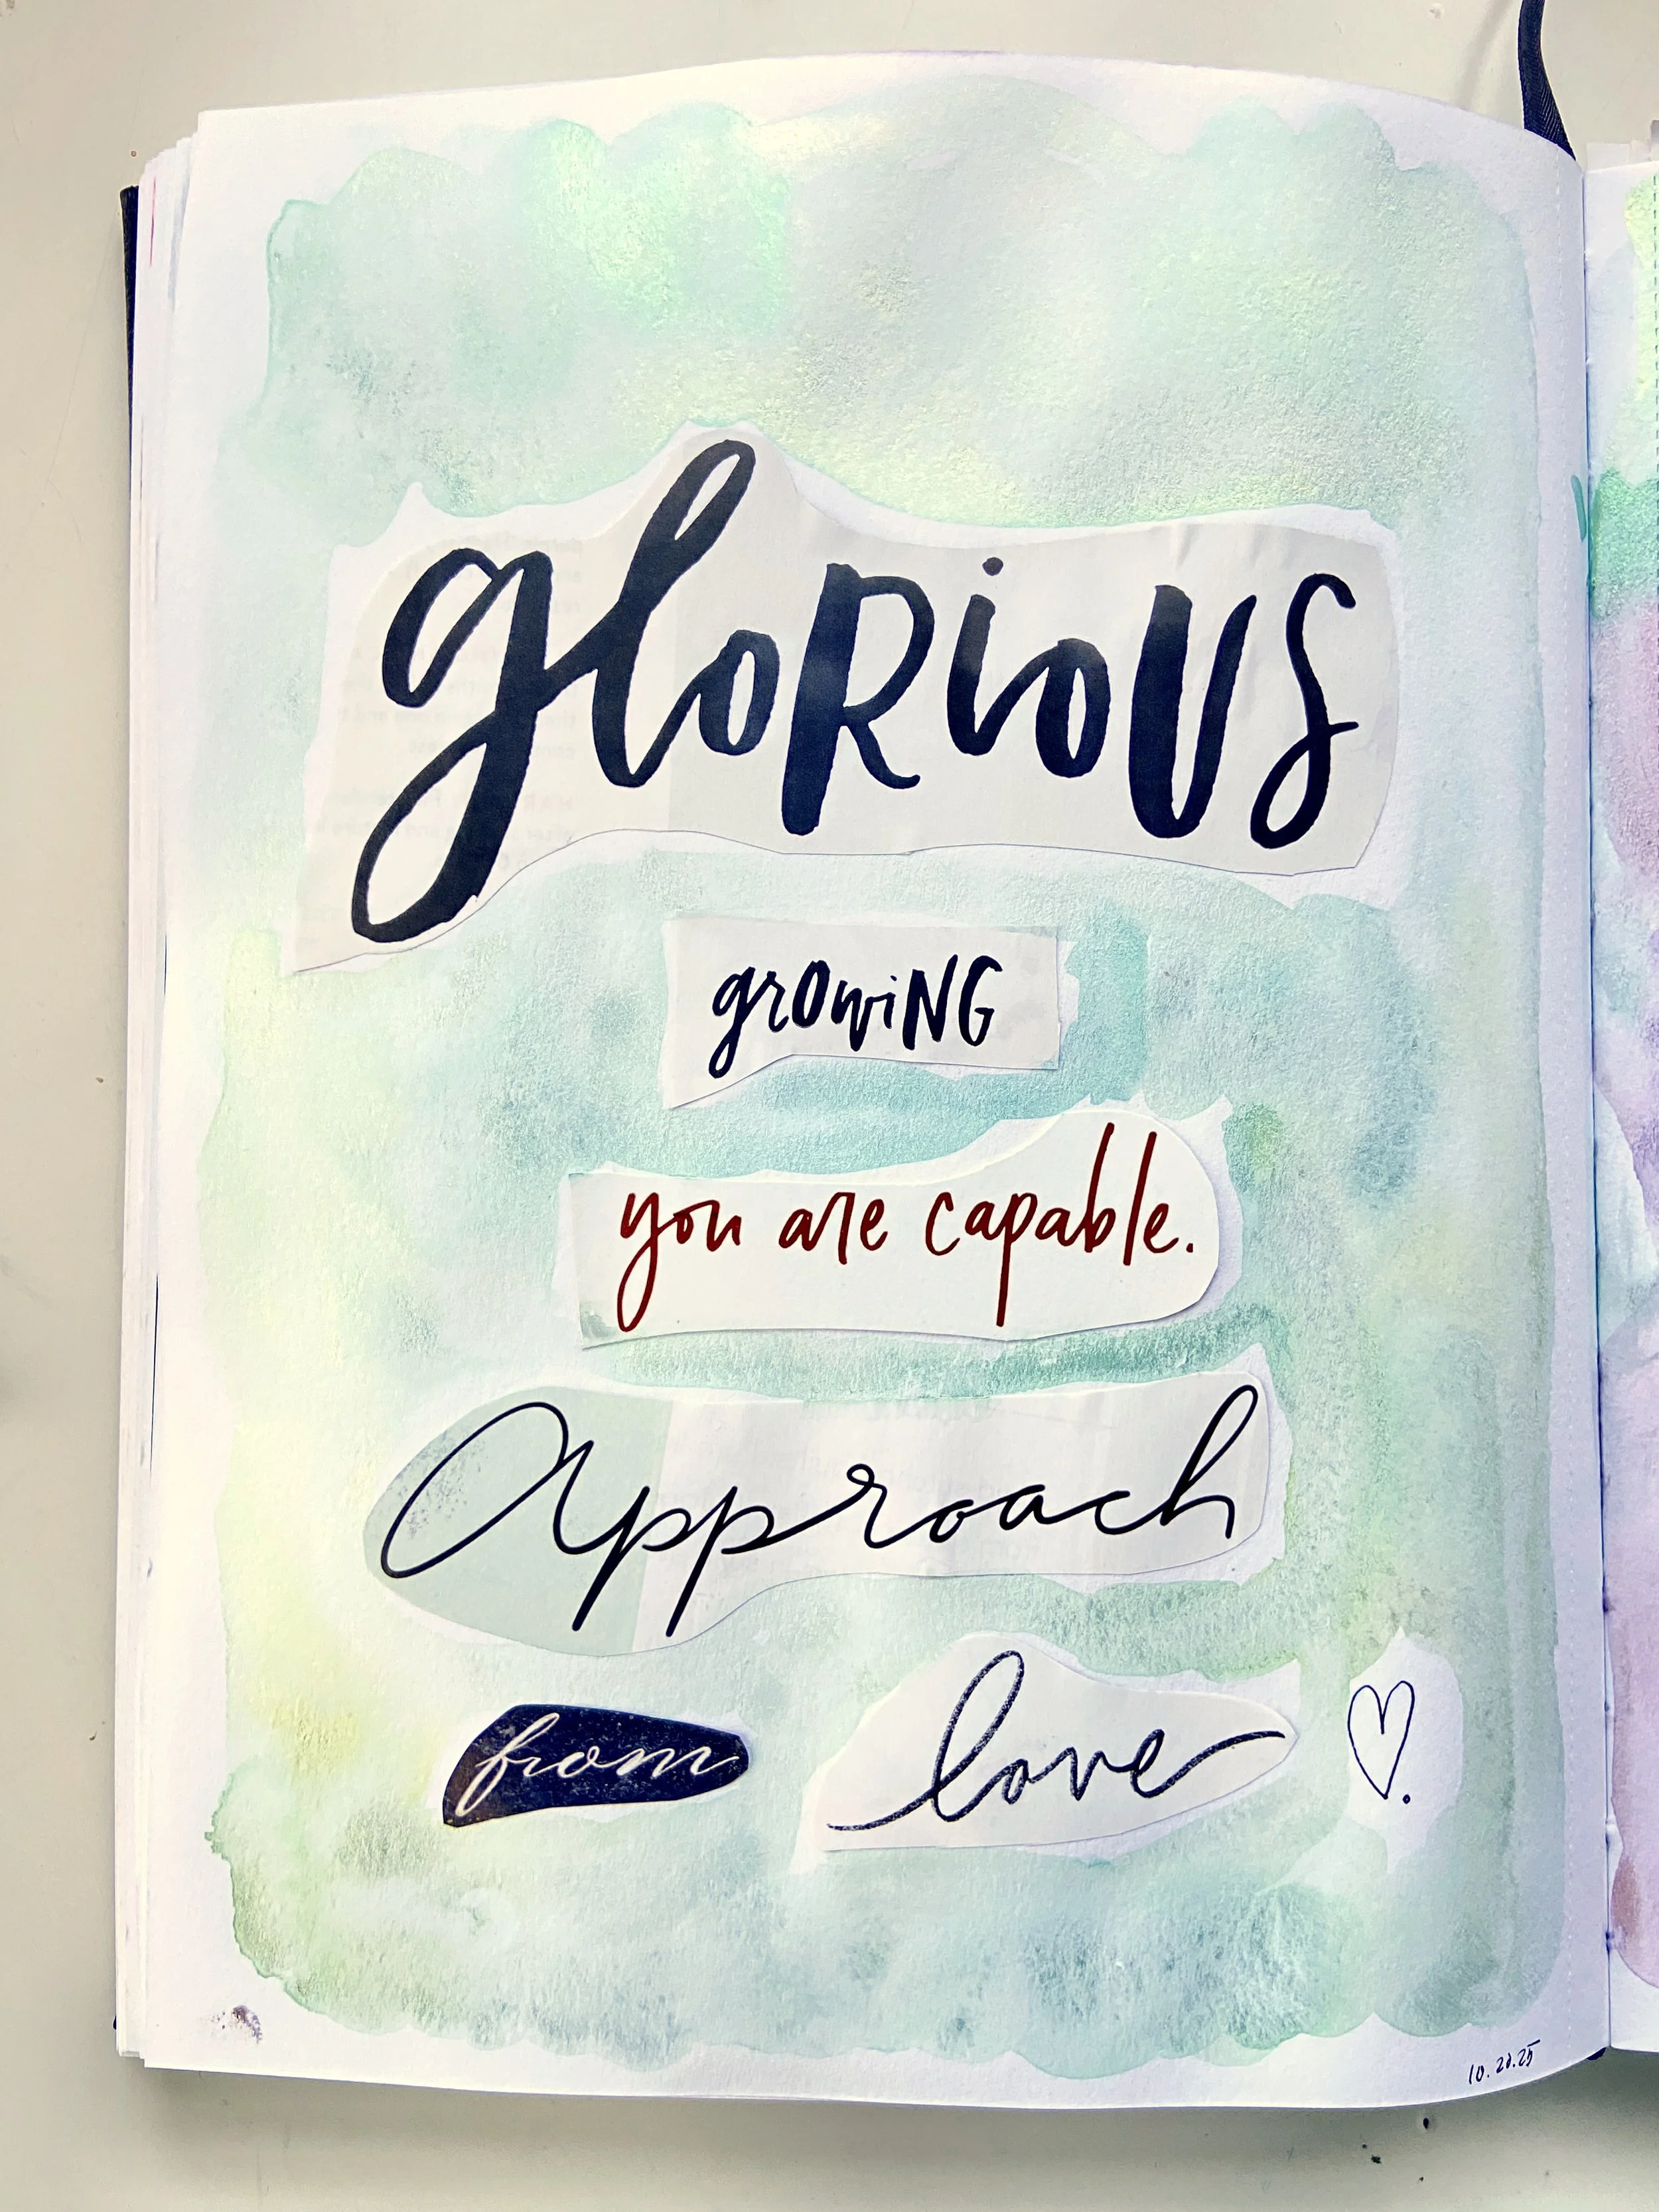 gloRioUS
growiNG
you are capable.
Approach
from love